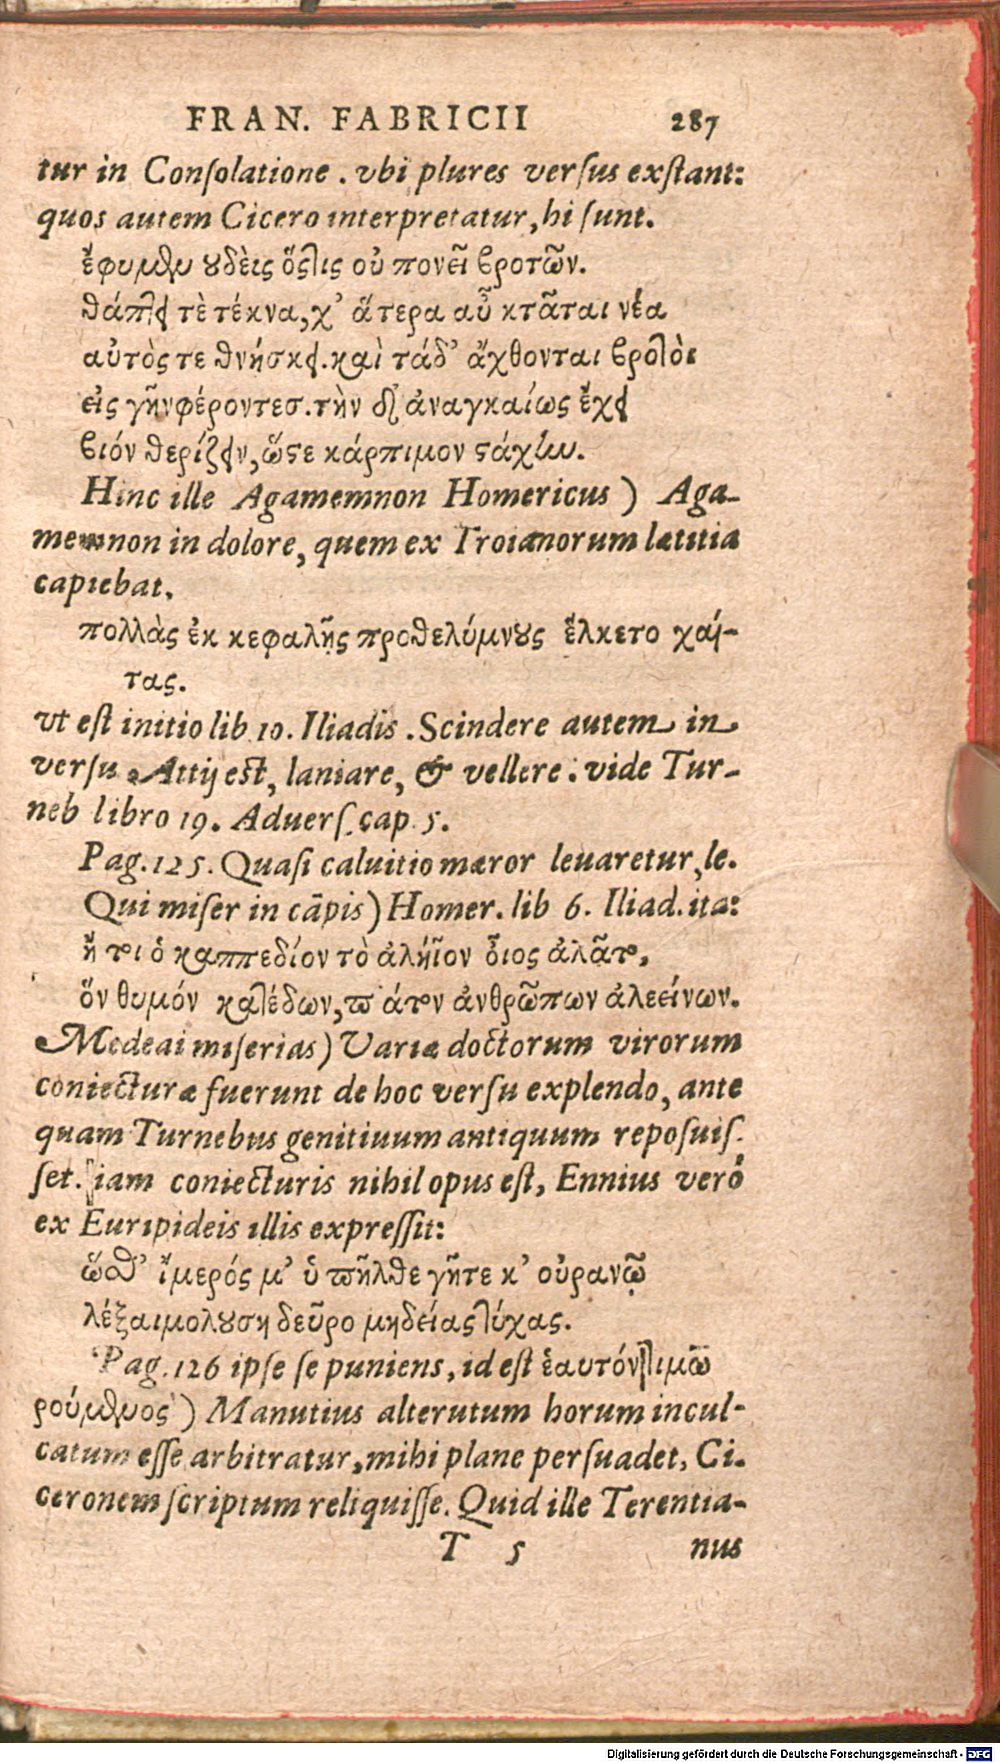 FRAN. FABRICII 287
tur in Conſolatione . vbi plures verſus exſtant:
quos autem Cicero interpretatur, hi ſunt.
ἔφυ μὲν ουδὲις ὅςτις οὐ πονεῖ βροτῶν.
θάπτει τὲ τέκνα, χ’ ἅτερα αὖ κτᾶται νέα
αὐτὸς τε θνήσκει. καὶ τάδ’ ἄχθονται βροτὸι
εἰς γῆν φέροντεσ. τὴν δ’ ἀναγκαίως ἔχει
βιόν θερίζειν, ὥςε κάρπιμον ςάχυν.
Hinc ille Agamemnon Homericus ) Aga-
memnon in dolore, quem ex Troianorum lætitia
capiebat.
πολλὰς ἐκ κεφαλῆς προθελύμνους ἕλκετο χαί-
τας.
vt eſt initio lib 10. Iliadis . Scindere autem in
verſu Attij eſt, laniare, & vellere : vide Tur-
neb libro 19. Aduerſ. cap. 5.
Pag. 125. Quaſi caluitio mæror leuaretur, le.
Qui miſer in cāpis ) Homer. lib 6. Iliad. ita:
ἤ τοι ὁ καππεδίον τὸ ἀλήϊον οἶος ἀλᾶτο,
ὅν θυμόν κατέδων, πάτον ἀνθρῶπων ἀλεείνων.
Medeai miſerias ) Variæ doctorum virorum
coniecturæ fuerunt de hoc verſu explendo, ante
quam Turnebus genitiuum antiquum repoſuiſ-
ſet. iam coniecturis nihil opus eſt, Ennius verò
ex Euripideis illis expreſſit:
ὥσθ’ ἵμερός μ’ ὑπῆλθε γῆτε κ’ οὐρανῷ
λέξαι μολουση δεῦρο μηδείας τύχας.
Pag. 126 ipſe ſe puniens, id eſt ἑαυτόν τιμω
ρούμενος ) Manutius alterutum horum incul-
catum eſſe arbitratur, mihi plane perſuadet, Ci-
ceronem ſcriptum reliquiſſe. Quid ille Terentia-
T 5 nus
Digitalisierung gefördert durch die Deutsche Forschungsgemeinschaft - DFG